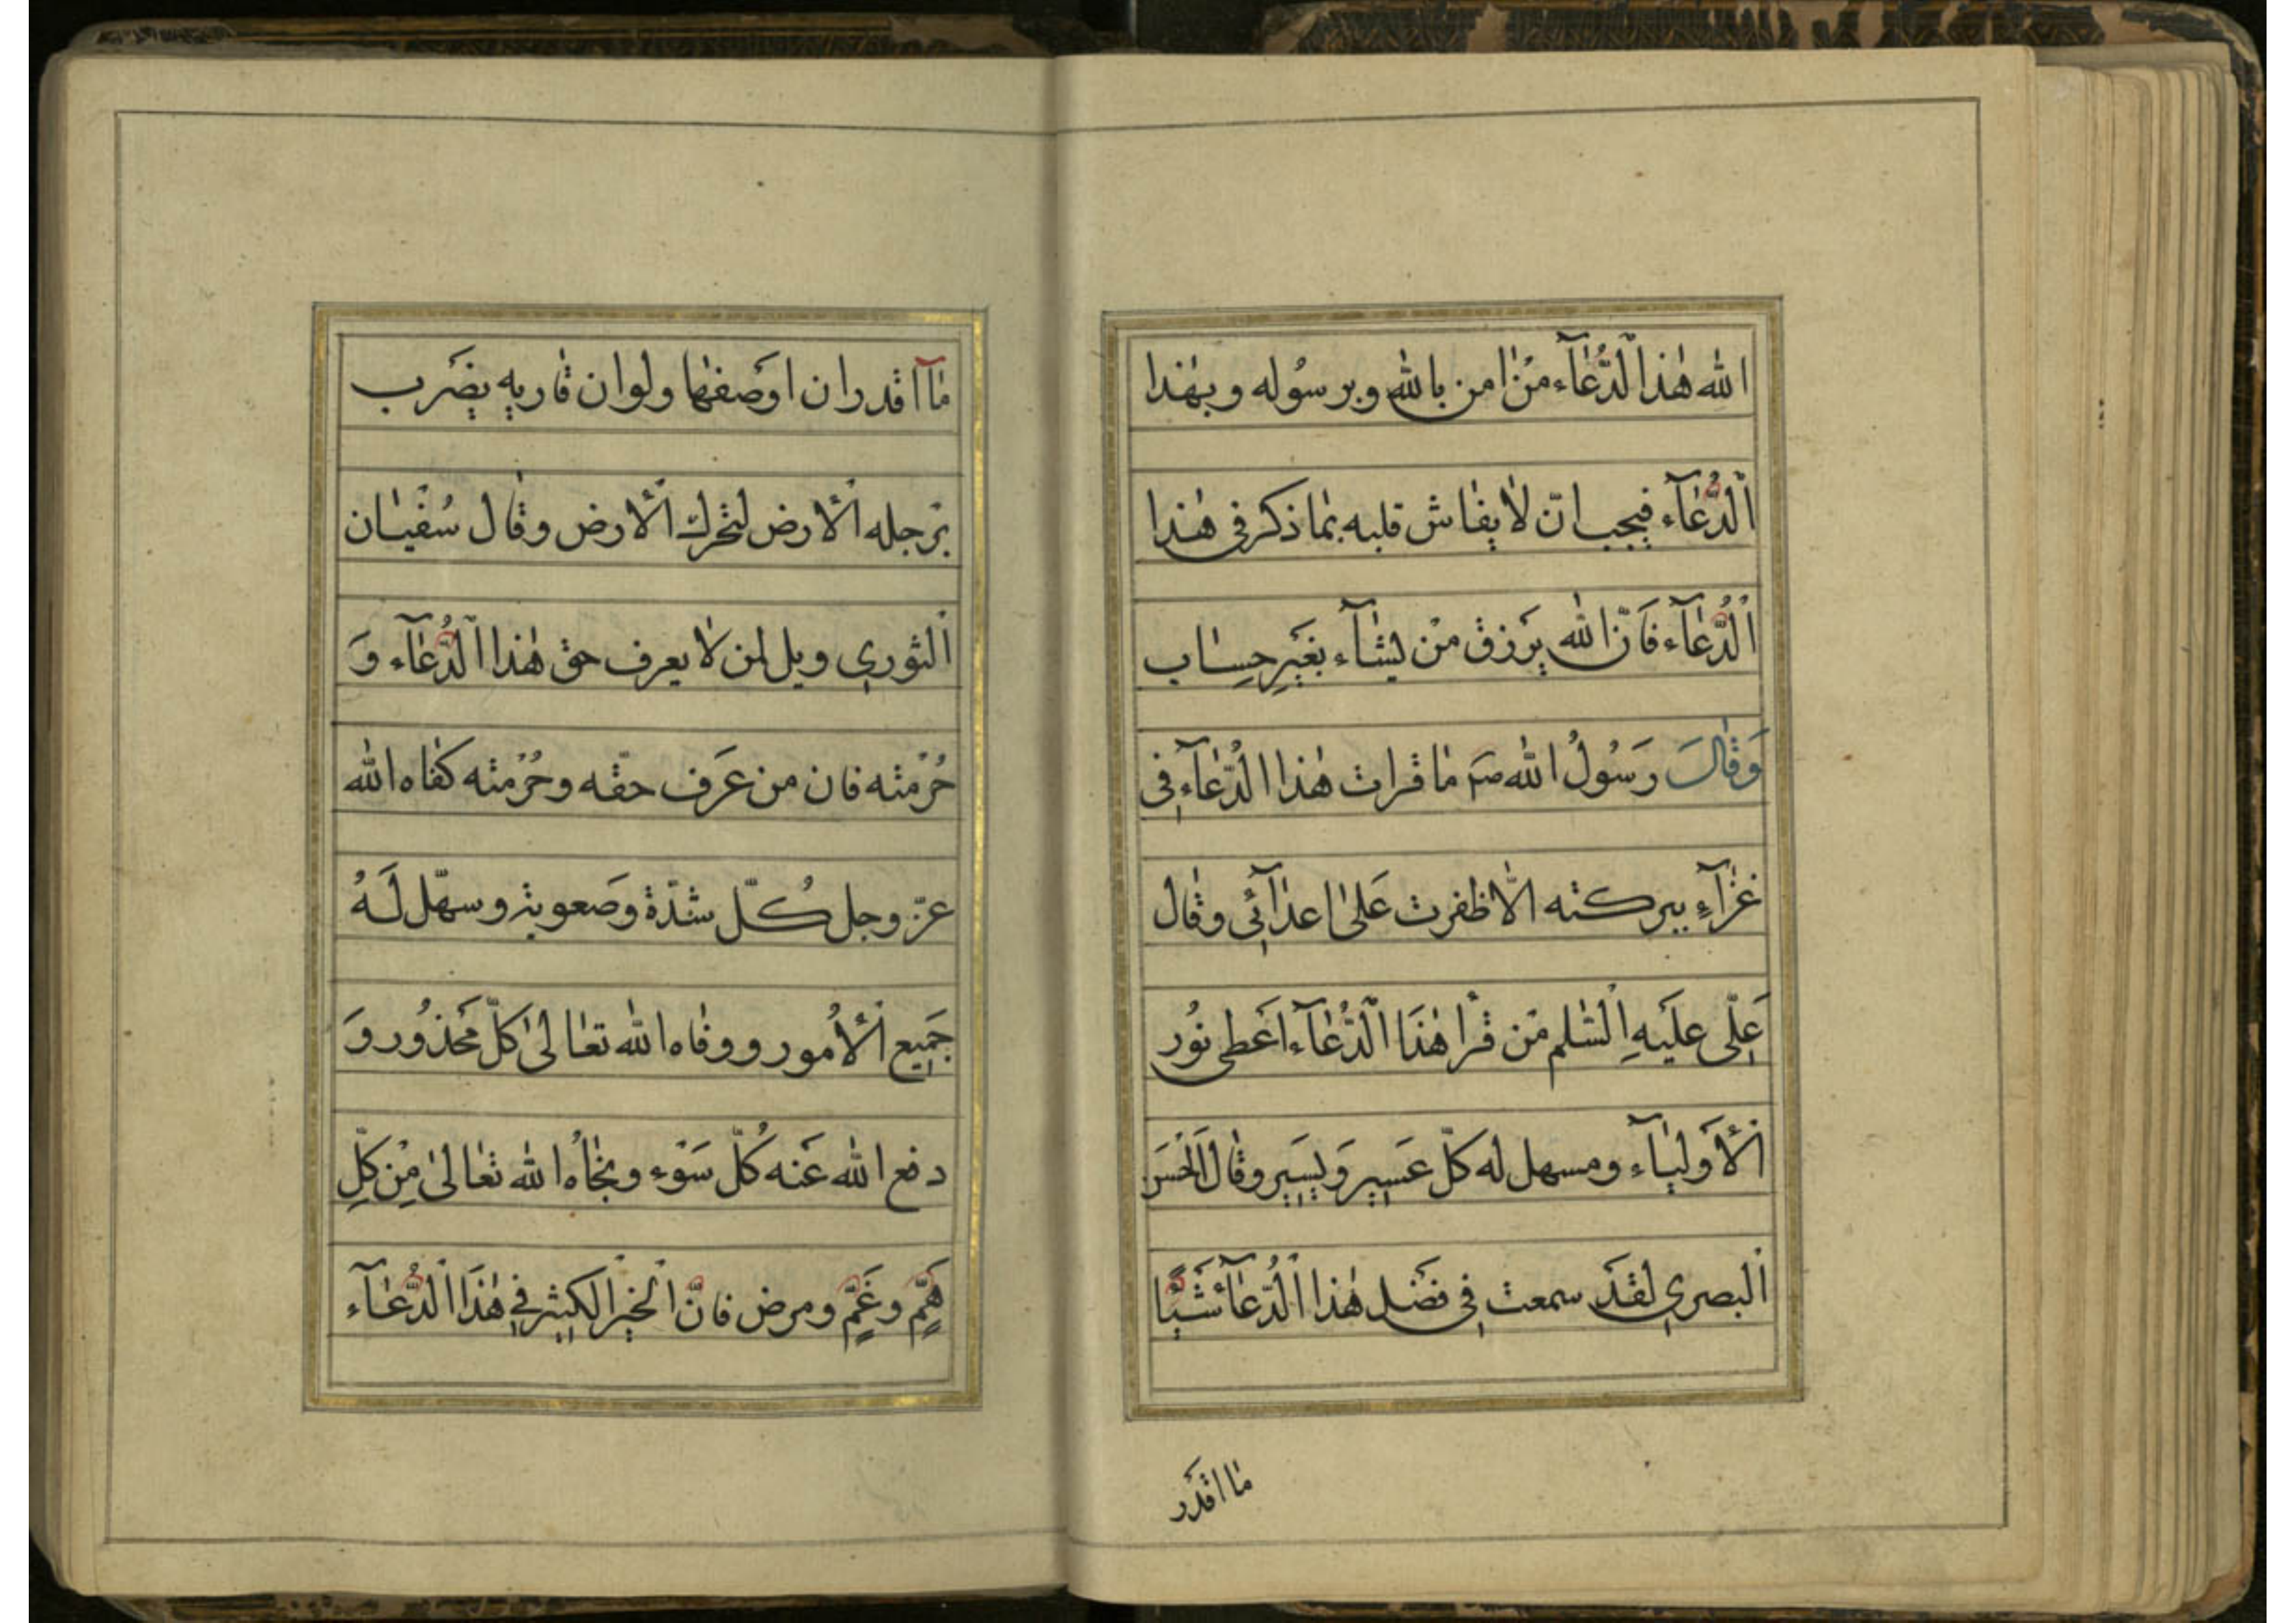 الله هٰذا الدُّعٰآء مَنْ اٰمن بالله وبرسُوله وبهٰذا
الدُّعٰآء فيجب انّ لا يفٰاش قلبه بمٰا ذكر فى هٰذا
الدُّعٰآء فَانّ الله يَرزق مَنْ يشٰآء بغَيرِ حِسٰاب
وَقٰالَ رَسُولُ الله صَم مٰا قرات هٰذا الدّعٰآء فى
غزٰآءٍ ببركته الّا ظفرت عَلىٰ اعدٰآئى وقٰال
عَلّى عليَهِ السّٰلم مَن قرا هٰذَا الدُّعٰآء اعَطى نوُر
الْأَوليٰآء ومسهل له كلّ عَسِير وَيسَير وقٰال الْحَسَن
البصري لقدَ سمعت فى فضَل هٰذا الدُّعٰآء شَيْئًا
مٰا اقدَر
مٰآ اقدر ان اوَصفهٰا ولو ان قٰاريه يضَرب
برَجله الْأرض لتحْرك الْأرض وقٰال سُفْيٰان
الثوري ويل لمن لٰا يعرف حق هٰذا الدُّعٰآء وَ
حُرْمته فان من عَرَف حقّه وحُرْمته كفٰاه الله
عزّ وجل كُلّ شدّة وَصعوبة وسهّل لَهُ
جَمِيع الْأُمور ووقٰاه الله تعٰالىٰ كلّ محَذُور وَ
دفع الله عَنه كُلّ سَوْء ونجّٰاهُ الله تعٰالىٰ مِنْ كلِّ
هَمٍّ وغَمٍّ ومرض فانَّ الخيْر الكثير فِي هٰذَا الدُّعٰآء